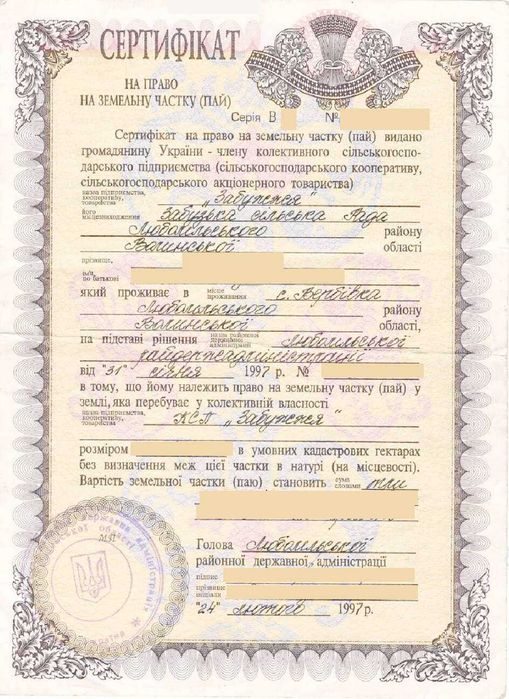 СЕРТИФІКАТ
НА ПРАВО
НА ЗЕМЕЛЬНУ ЧАСТКУ (ПАЙ)
Серія В №
Сертифікат на право на земельну частку (пай) видано
громадянину України - члену колективного сільськогоспо-
дарського підприємства (сільськогосподарського кооперативу,
сільськогосподарського акціонерного товариства)
назва підприємства,
кооперативу,
товариства „Забужжя"
його
місцезнаходження Забузька сільська Рада
Любомльського району
Волинської області
прізвище,
ім'я,
по батькові
який проживає в місце
проживання с. Вербівка
Любомльського району
Волинської області,
на підставі рішення назва районної
державної
адміністрації Любомльської
райдержадміністрації
від "31" січня 1997 р. №
в тому, що йому належить право на земельну частку (пай) у
землі, яка перебуває у колективній власності
назва підприємства,
кооперативу,
товариства КСП „Забужжя"
розміром в умовних кадастрових гектарах
без визначення меж цієї частки в натурі (на місцевості).
Вартість земельної частки (паю) становить сума
словами
Голова Любомльської
районної державної адміністрації
підпис
прізвище
ініціали
"24" лютого 1997 р.
М.П.